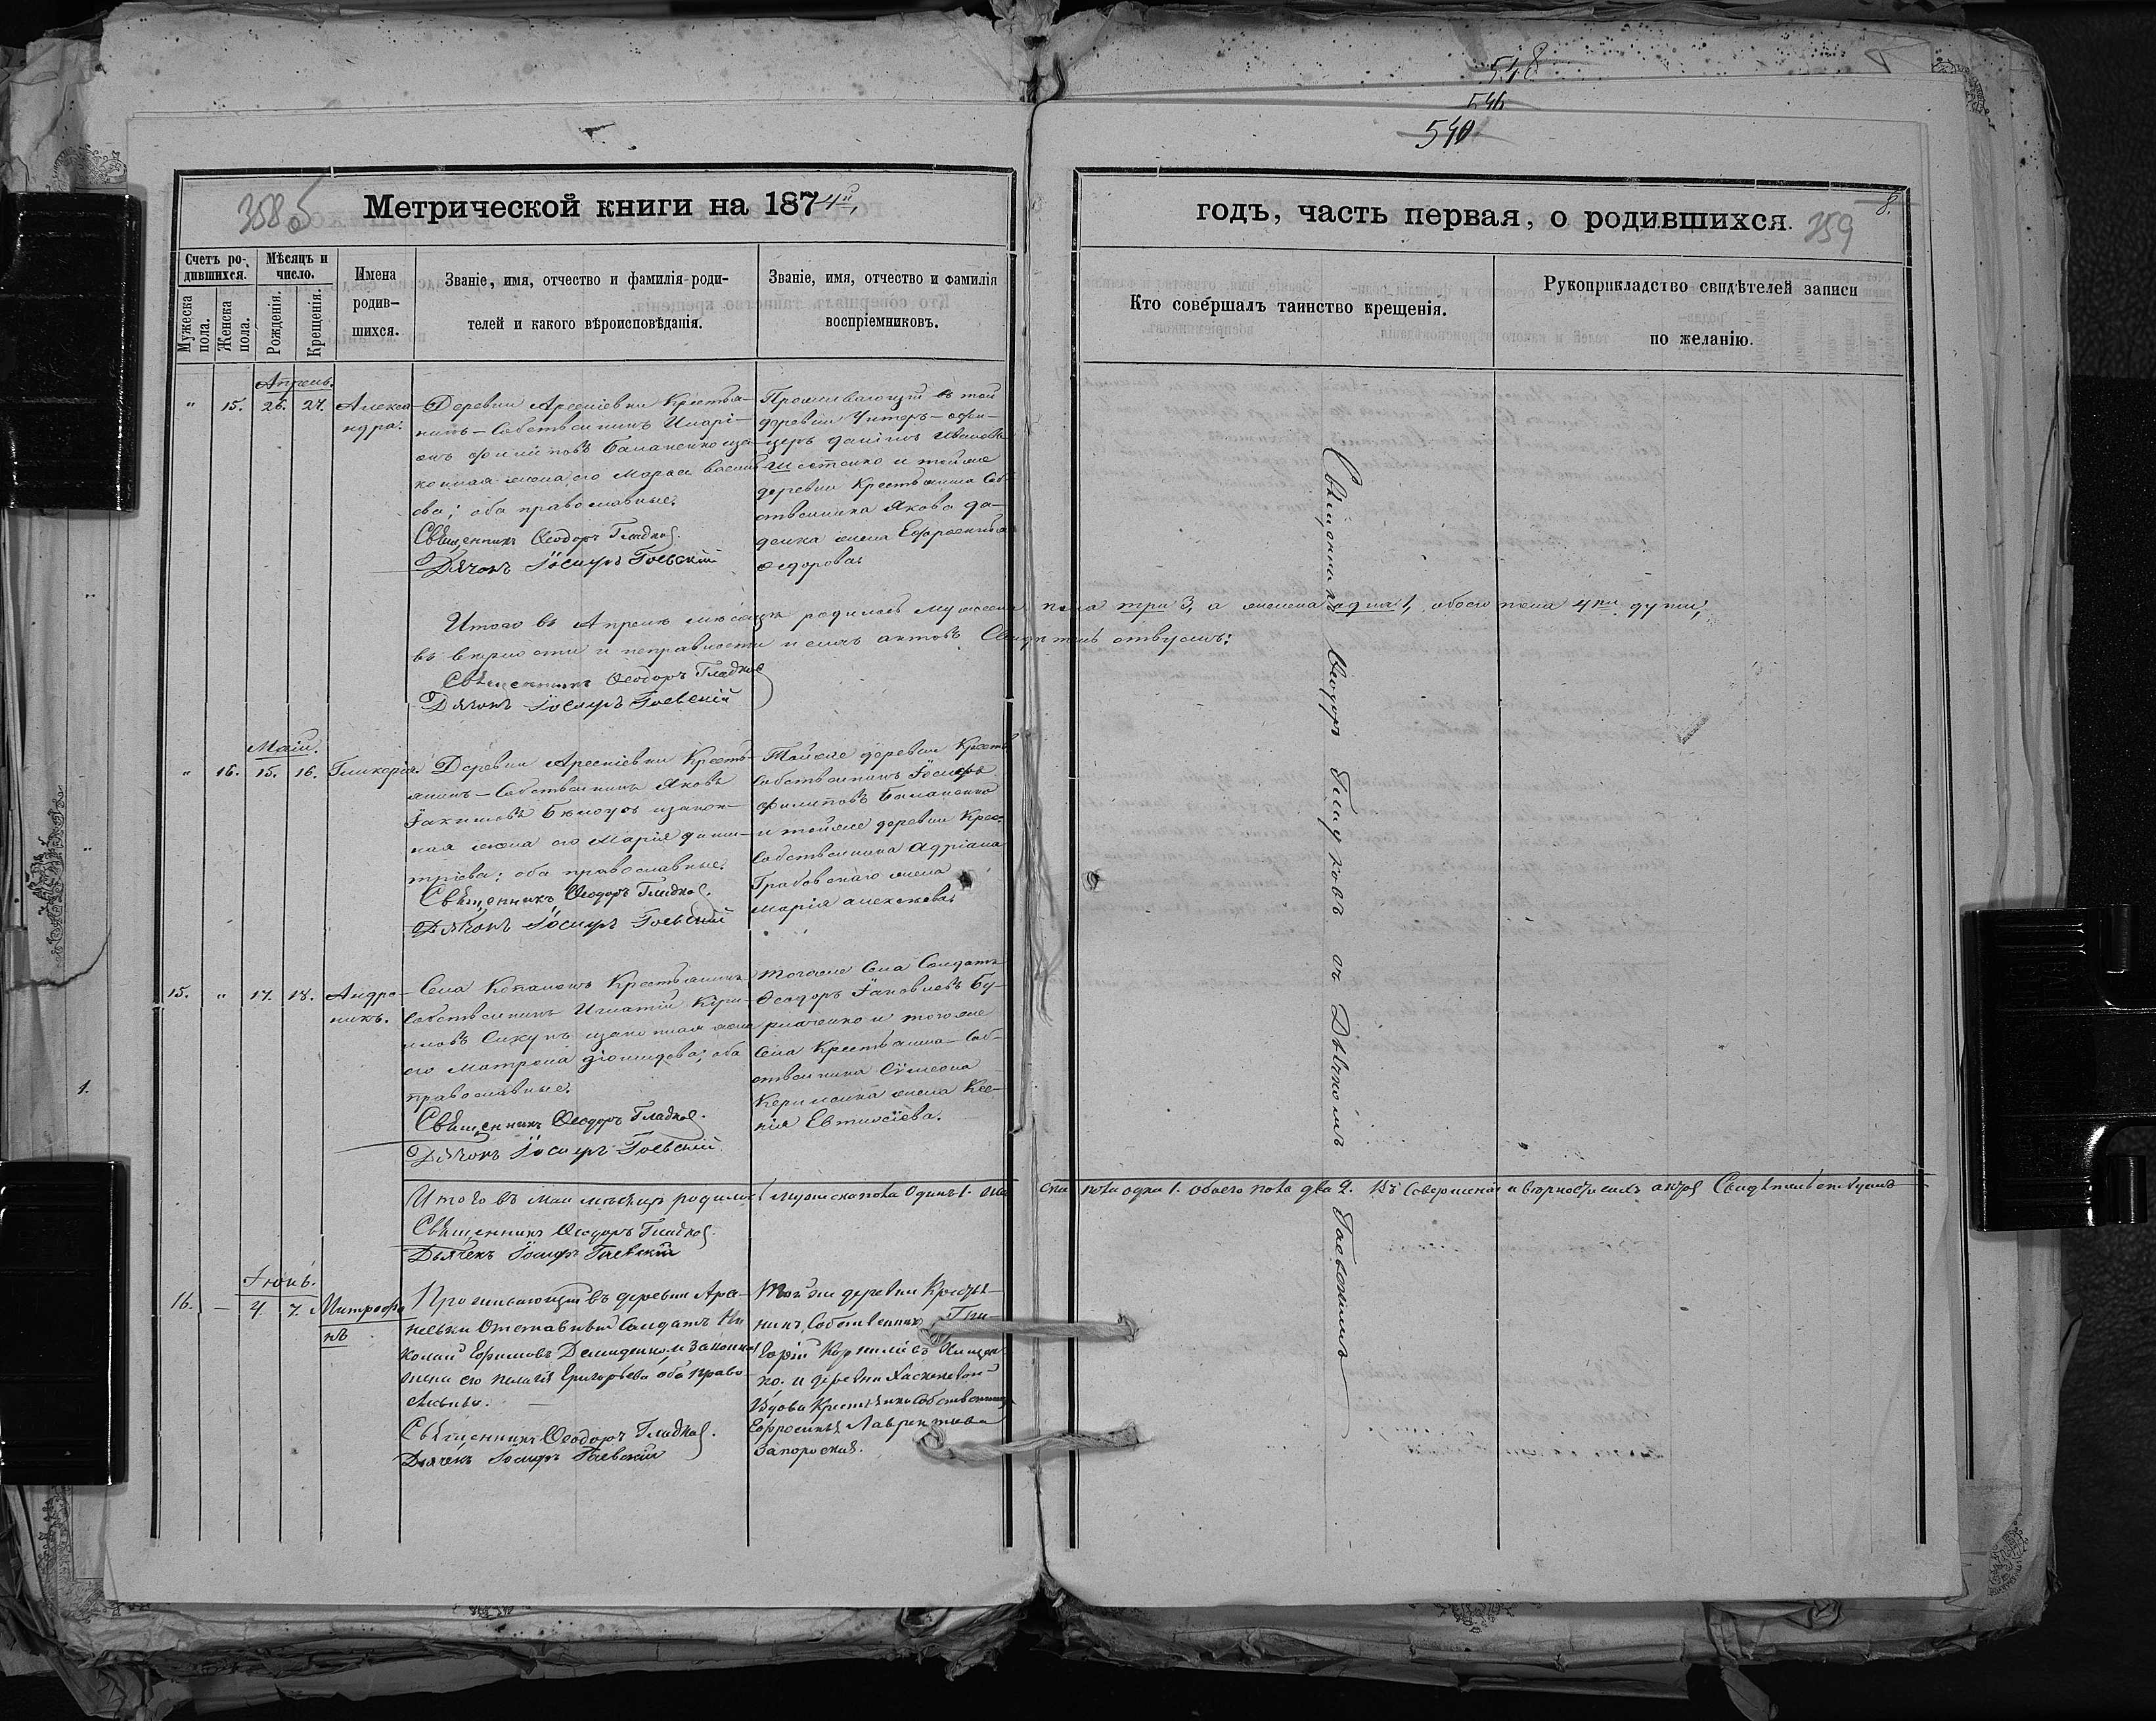 548
546
540
358 б
Метрической книги на 1874й
годъ, часть первая, о родившихся.
359
8.
Счетъ ро-
дившихся.
Мѣсяцъ и
число.
Мужеска
пола.
Женска
пола.
Рожденія.
Крещенія.
Имена
родив-
шихся.
Званіе, имя, отчество и фамилія роди-
телей и какого вѣроисповѣданія.
Званіе, имя, отчество и фамилія
воспріемниковъ.
Кто совершалъ таинство крещенія.
Рукоприкладство свидѣтелей записи
по желанію.
Апрель.
" 15. 26. 27.
Алекса-
ндра.
Деревни Арсеніевки Крестья-
нинъ-Собственникъ
Филиповъ Баланенко иза-
конная жена его
ова; оба православные.
Священникъ Ѳеодоръ Гладков.
Дячокъ Іосифъ Гаевскій
Проживающій въ той
деревни Унтеръ-офи-
церъ Ивановъ
и тойже
деревни Крестьянина Соб-
ственника Якова
жена Ефросинія
Федорова
Итого въ Апрелѣ мѣсяцѣ родилось мужеска пола три 3, а женска одна 1, обоего пола 4ри души;
въ вѣрности и исправности сихъ актовъ Свидѣтельствуемъ:
Священникъ Ѳеодоръ Гладков
Дячокъ Іосифъ Гаевскій
Маій.
" 16. 15. 16.
Гликерія.
Деревни Арсеніевки Кресть-
янинъ-Собственникъ Яковъ
Іакимовъ изакон-
ная жена его Марія Дими-
тріева; оба православные.
Священникъ Ѳеодоръ Гладков.
Дячокъ Іосифъ Гаевскій
Тойже деревни Крест.
Собственникъ Іосифъ
Филиповъ Баланенко
и тойже деревни Крес.
Собственника Адріана
Грабовскаго жена
Марія Алексѣева
15. " 17. 18.
Андро-
никъ.
Села Крестьянинъ
Собственникъ Игнатій Кири-
ловъ изаконная жена
его Матрона оба
православные.
Священникъ Ѳеодоръ Гладков.
Дячокъ Іосифъ Гаевскій
Тогоже Села Солдатъ
Ѳеодоръ Іаковлевъ Бу-
и тогоже
Села Крестьянина-Соб-
ственника Сѷмеона
жена Ксе-
нія Евтихіева.
Итого въ Маи мѣсяцѣ родилось мужеска пола Одинъ 1. женска пола одна 1. обоего пола два 2. Въ совершеніи и вѣрности сихъ актов Свидѣтельствуемъ
Священникъ Ѳеодоръ Гладков.
Дьячекъ Іосифъ Гаевскій
Іюнь.
16. — 4. 7.
Митрофа
нъ
Проживающій въ деревни Арсе-
ньевки Отставный Солдатъ Ни
колай Ефимовъ Демиденко и законная
жена его Пелагія Григорьева оба право-
славны.
Священникъ Ѳеодоръ Гладков.
Дьячекъ Іосифъ Гаевскій
Той же деревни Крестья-
нинъ Собственникъ Гри-
горій Корниліевъ
ко. и деревни
Вдова Крестьянка Собственница
Ефросинья Лаврентіева
Запорожская.
Священникъ Ѳеодоръ Гладковъ съ Дьячкомъ Гаевскимъ
1.